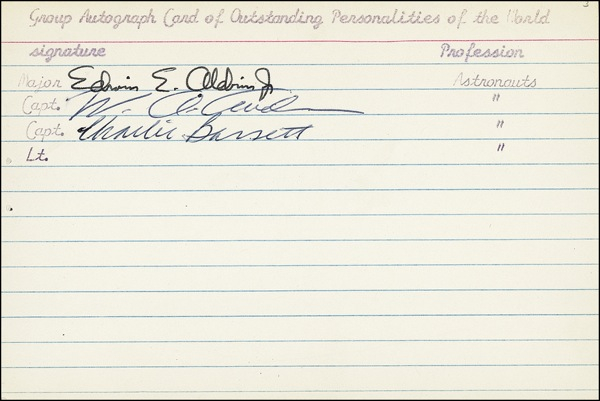 Group Autograph Card of Outstanding Personalities of the World
signature Profession
Major Edwin E. Aldrin Jr. Astronauts
Capt. W. A. "
Capt. Charlie Bassett "
Lt. "